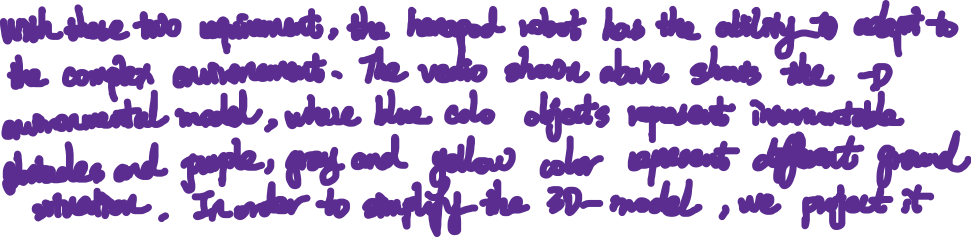 With these two requirement, the hexapod robot has the ability to adapt to
the complex environment. The vedio shown above shows the 3D
environmental model, where blue colo objects represent insurmountable
obstacles and purple, gray and yellow color represent different ground
situation. In order to simplify the 3D model, we project it